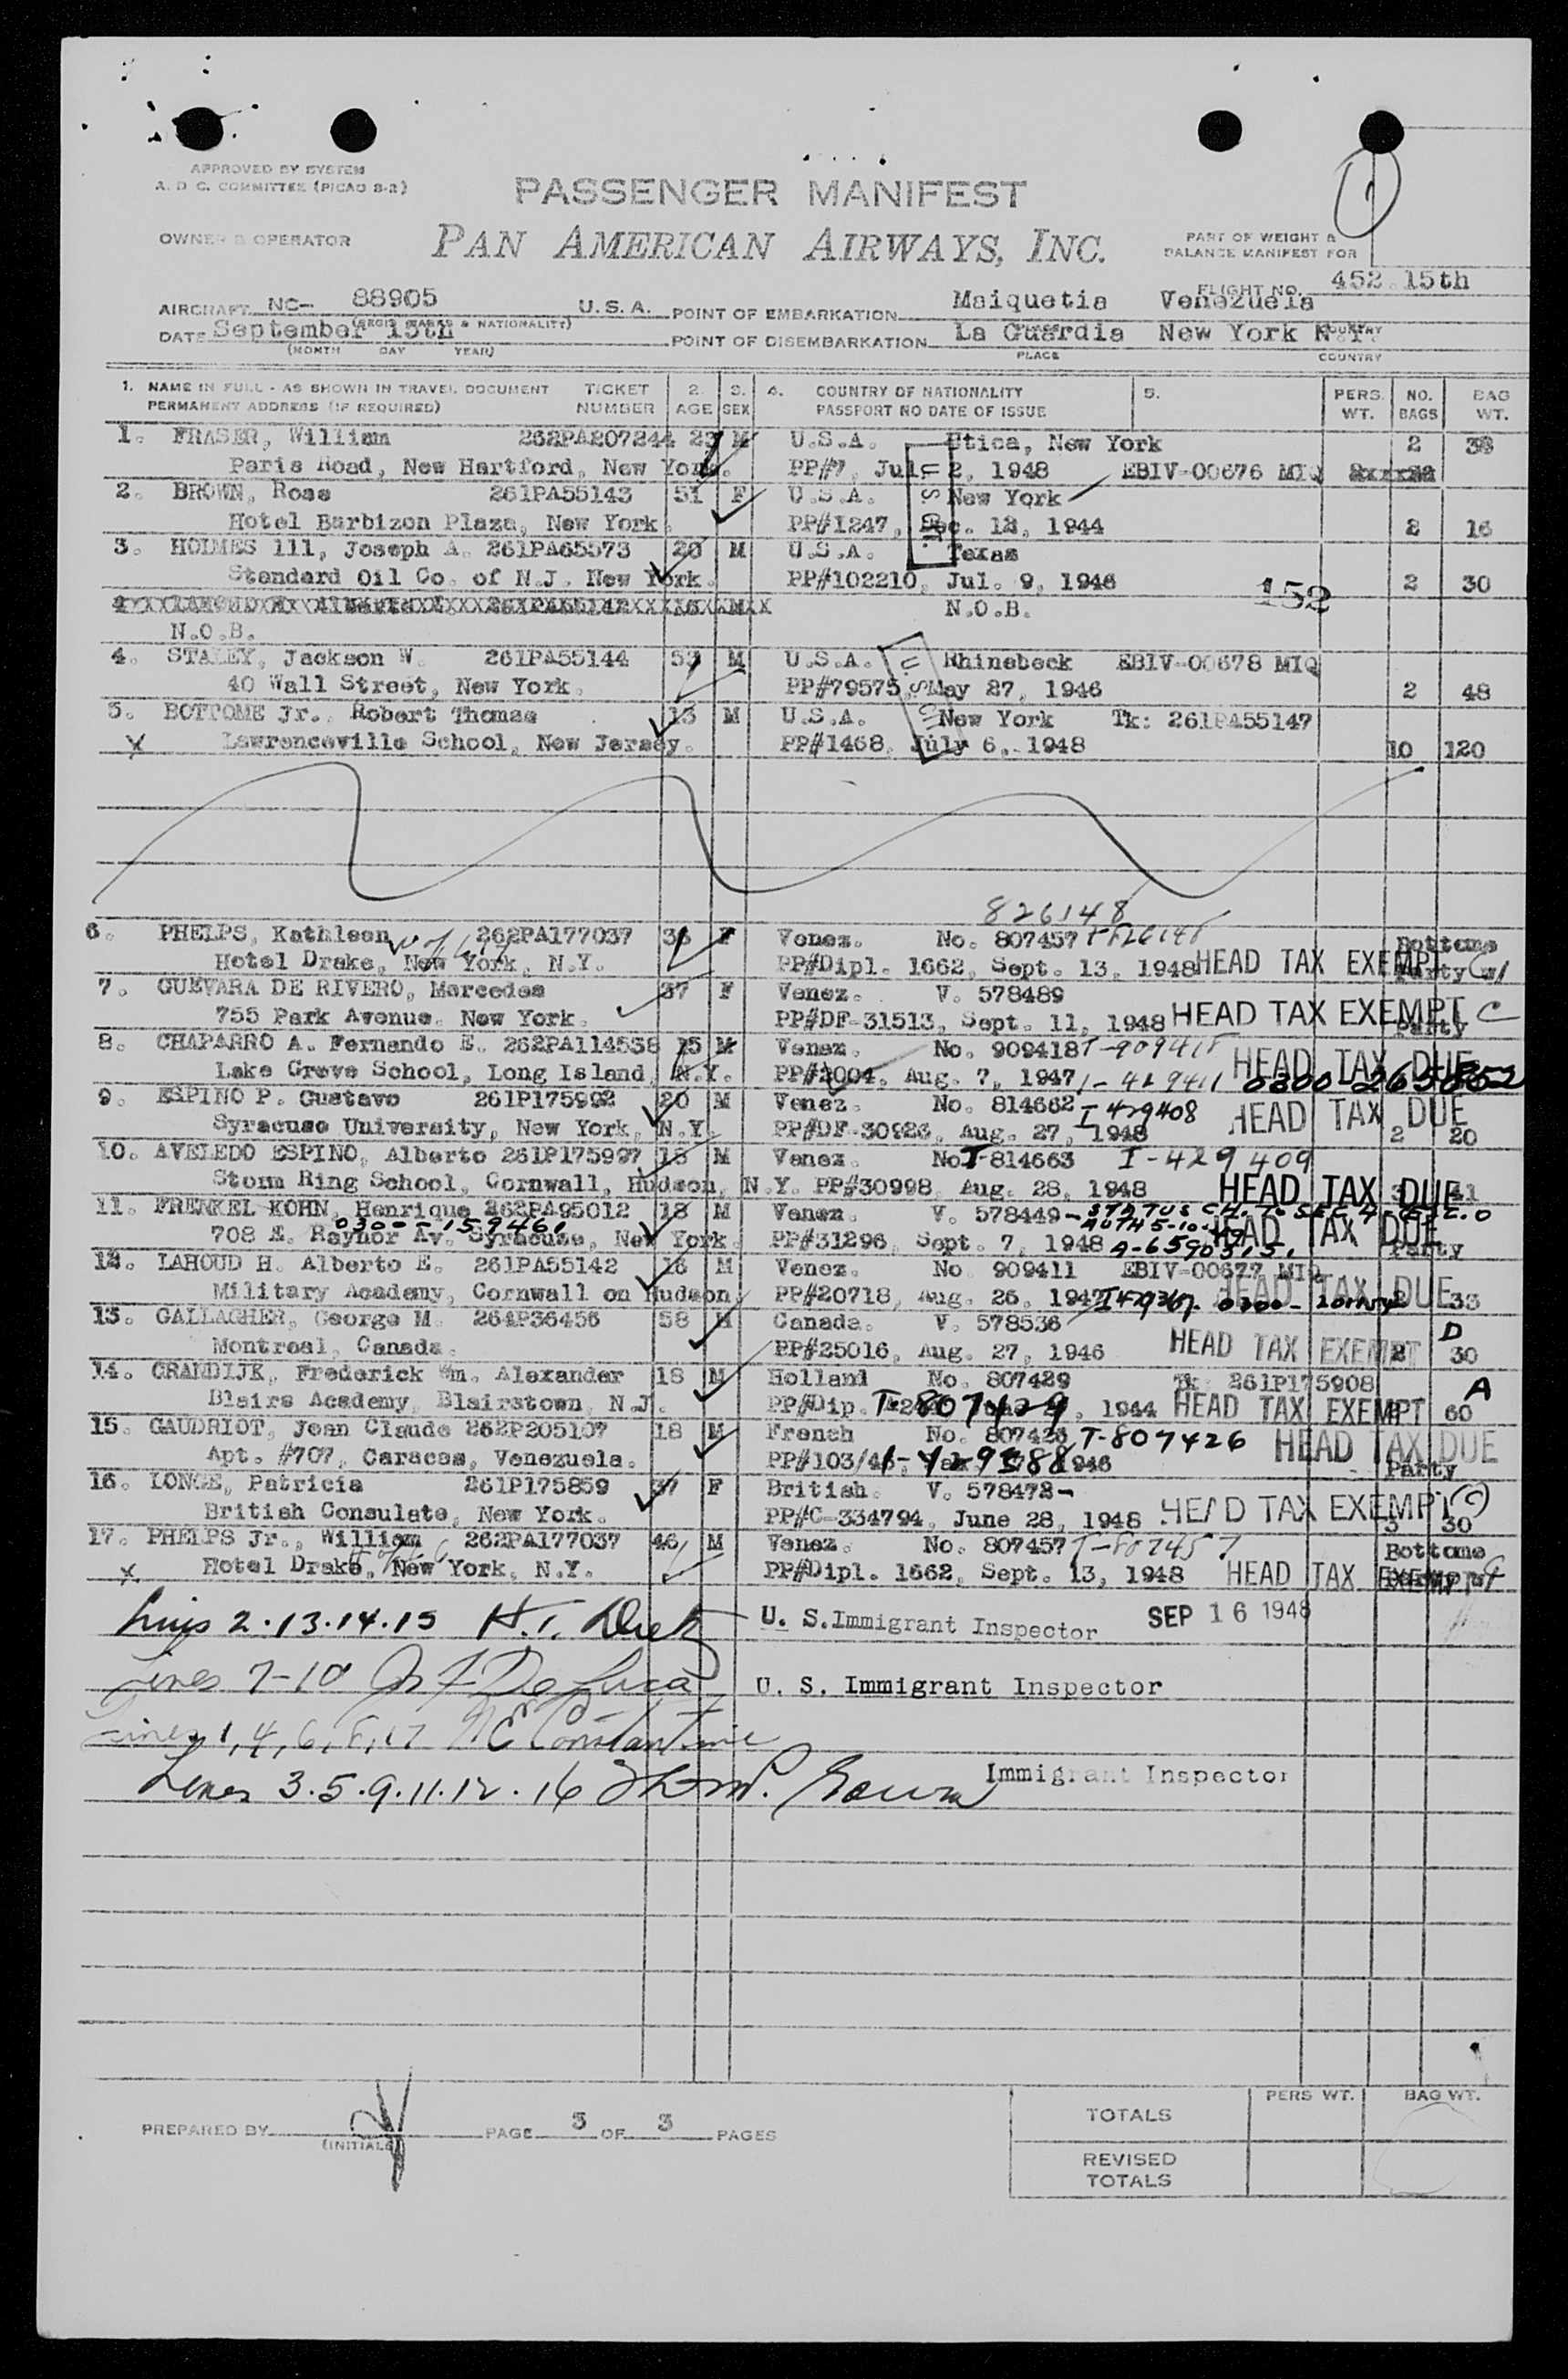 APPROVED BY SYSTEM
A. D C. COMMITTEE (PICAO S-2)
PASSENGER MANIFEST
OWNER & OPERATOR
PAN AMERICAN AIRWAYS, INC.
PART OF WEIGHT &
BALANCE MANIFEST FOR
FLIGHT NO. 452 15th
AIRCRAFT NC- 88905 U.S.A.
(REGIS. MARKS & NATIONALITY)
POINT OF EMBARKATION Maiquetia Venezuela
DATE September 15th
(MONTH DAY YEAR)
POINT OF DISEMBARKATION La Guardia New York N.Y.
PLACE COUNTRY
1. NAME IN FULL - AS SHOWN IN TRAVEL DOCUMENT TICKET 2. 3. 4. COUNTRY OF NATIONALITY 5. PERS. NO. BAG
PERMANENT ADDRESS (IF REQUIRED) NUMBER AGE SEX PASSPORT NO DATE OF ISSUE WT. BAGS WT.
1. FRASER, William 262PA207244 M U.S.A. Utica, New York 2
Paris Road, New Hartford, New York. PP#7, Jul. 2, 1948 EBIV-00676 MIQ
2. BROWN, Rose 261PA55143 51 F U.S.A. New York
Hotel Barbizon Plaza, New York. PP#1247, Dec. 12, 1944 2 16
3. HOLMES 111, Joseph A. 261PA65573 20 M U.S.A. Texas
Standard Oil Co. of N.J. New York. PP#102210, Jul. 9, 1946 152 2 30
N.O.B.
N.O.B.
4. STALEY, Jackson W. 261PA55144 53 M U.S.A. Rhinebeck EBIV-00678 MIQ
40 Wall Street, New York. PP#79575, May 27, 1946 2 48
5. BOTTOME Jr., Robert Thomas 13 M U.S.A. New York Tk: 261PA55147
X Lawrenceville School, New Jersey. PP#1468, July 6, 1948 10 120
826148
6. PHELPS, Kathleen 262PA177037 F Venez. No. 807457
Hotel Drake, New York, N.Y. PP#Dipl. 1662, Sept. 13, 1948 HEAD TAX EXEMPT
7. GUEVARA DE RIVERO, Mercedes 37 F Venez. V. 578489
755 Park Avenue. New York. PP#DF-31513, Sept. 11, 1948 HEAD TAX EXEMPT C
8. CHAPARRO A. Fernando E. 262PA114538 15 M Venez. No. 909418
Lake Grove School, Long Island, N.Y. PP#2004, Aug. 7, 1947 HEAD TAX DUE
9. ESPINO P. Gustavo 261P175992 20 M Venez. No. 814662 I-429408
Syracuse University, New York, N.Y. Aug. 27, 1948 HEAD TAX DUE 2 20
10. AVELEDO ESPINO, Alberto 261P175997 M Venez. No. T-814663 I-429409
Storm King School, Cornwall, Hudson, N.Y. PP#30998, Aug. 28, 1948 HEAD TAX DUE
11. FRENKEL KOHN, Henrique 262PA95012 18 M Venez. V. 578449
0300-159460
708 E. Raynor Av. Syracuse, New York. PP#31296, Sept. 7, 1948 HEAD TAX DUE Party
12. LAHOUD H. Alberto E. 261PA55142 16 M Venez. No 909411 EBIV-00677 MIQ
Military Academy, Cornwall on Hudson, PP#20718, HEAD TAX DUE 33
13. GALLAGHER, George M. 264P36456 58 M Canada. V. 578536 D
Montreal, Canada. PP#25016, Aug. 27, 1946 HEAD TAX EXEMPT 30
14. GRANDIJK, Frederick Wm. Alexander 18 M Holland No. 807429 Tk: 261P175908 A
Blairs Academy, Blairstown, N.J. PP#Dip. T-807429, 1944 HEAD TAX EXEMPT 60
15. GAUDRIOT, Jean Claude 262P205107 18 M French No. 807426 T-807426 HEAD TAX DUE
Apt. #707, Caracas, Venezuela. 1946 Party
16. LONGE, Patricia 261P175859 37 F British. V. 578472-
British Consulate, New York. PP#C-334794, June 28, 1948 HEAD TAX EXEMPT (C) 3 30
17. PHELPS Jr., William 262PA177037 46 M Venez. No. 807457 T-807457 Bottome
X Hotel Drake, New York, N.Y. PP#Dipl. 1662, Sept. 13, 1948 HEAD TAX EXEMPT
2.13.14.15 U. S. Immigrant Inspector SEP 16 1948
Lines 7-10 De Luca U. S. Immigrant Inspector
Lines 1, 4, 6, 8, 17 Constantine
Lines 3.5.9.11.12.16 Immigrant Inspector
PREPARED BY (INITIALS) PAGE 3 OF 3 PAGES
PERS WT. BAG WT.
TOTALS
REVISED
TOTALS